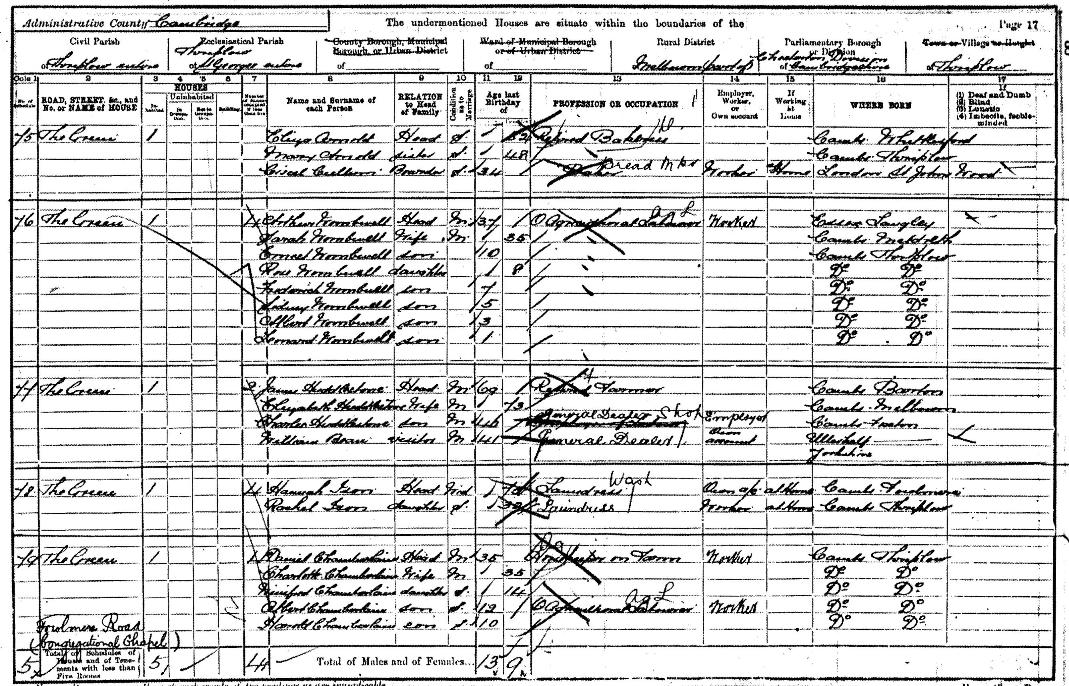 Administrative County Cambridge The undermentioned Houses are situate within the boundaries of the Page 17
Civil Parish Ecclesiastical Parish County Borough, Municipal Borough, or Urban District Ward of Municipal Borough or of Urban District Rural District Parliamentary Borough or Division Town or Village or Hamlet
of Thriplow of St Georges of Thriplow
Cols 1 2 3 4 5 6 7 8 9 10 11 12 13 14 15 16 17
ROAD, STREET, &c., and No. or NAME of HOUSE HOUSES Uninhabited Name and Surname of each Person RELATION to Head of Family Condition as to Marriage Age last Birthday of PROFESSION OR OCCUPATION Employer, Worker, or Own account If Working at Home WHERE BORN If (1) Deaf and Dumb (2) Blind (3) Lunatic (4) Imbecile, feeble-minded
75 The Green 1 Eliza Arnold Head S. Retired Cambs Whittlesford
Mary Arnold sister S. 48 Cambs Thriplow
Boarder S. 34 Baker Bread Worker Home London St Johns Wood
76 The Green 1 4 Arthur Wombwell Head M 37 Agricultural Labourer Worker Essex Langley
Sarah Wombwell Wife M 35 Cambs Meldreth
Ernest Wombwell son 10 Cambs Thriplow
Rose Wombwell daughter 8 Do Do
Frederick Wombwell son 7 Do Do
Sidney Wombwell son 5 Do Do
Albert Wombwell son 3 Do Do
Leonard Wombwell son 1 Do Do
77 The Green 1 James Huddlestone Head M 69 Retired Farmer Cambs Barton
Elizabeth Huddlestone Wife M 73 Cambs Melbourn
Charles Huddlestone son M General Dealer Shop Employer Cambs Foxton
William visitor M 41 General Dealer own account
Yorkshire
78 The Green 1 4 Hannah Ison Head Wid Laundress Wash Own a/c at Home Cambs Fowlmere
Rachel Ison daughter S. Laundress Worker at Home Cambs Thriplow
79 The Green 1 4 Daniel Chamberlain Head M 35 on Farm Worker Cambs Thriplow
Charlotte Chamberlain Wife M 35 Do Do
Winifred Chamberlain daughter S. 14 Do Do
Albert Chamberlain son S. 12 Agricultural Labourer Ag L Worker Do Do
Harold Chamberlain son 10 Do Do
Fowlmere Road
(Congregational Chapel)
5 Total of Schedules of Houses and of Tenements with less than Five Rooms 5 4 Total of Males and of Females... 13 9